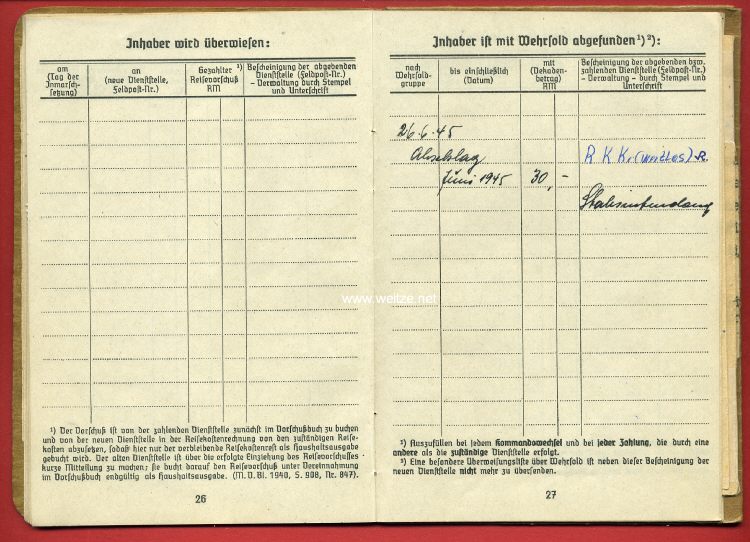 Inhaber wird überwiesen:
am
(Tag der
Inmarsch-
setzung)
an
(neue Dienststelle,
Feldpost-Nr.)
Gezahlter ¹)
Reisevorschuß
RM
Bescheinigung der abgebenden
Dienststelle (Feldpost-Nr.)
- Verwaltung durch Stempel
und Unterschrift
¹) Der Vorschuß ist von der zahlenden Dienststelle zunächst im Vorschußbuch zu buchen
und von der neuen Dienststelle in der Reisekostenrechnung von den zuständigen Reise-
kosten abzusetzen, sodaß hier nur der verbleibende Reisekostenrest als Haushaltsausgabe
gebucht wird. Der alten Dienststelle ist über die erfolgte Einziehung des Reisevorschusses
kurze Mitteilung zu machen; sie bucht darauf den Reisevorschuß unter Vereinnahmung
im Vorschußbuch endgültig als Haushaltsausgabe. (M. D. Bl. 1940, S. 908, Nr. 847).
26
Inhaber ist mit Wehrsold abgefunden¹)²):
nach
Wehrsold-
gruppe
bis einschließlich
(Datum)
mit
(Dekaden-
betrag)
RM
Bescheinigung der abgebenden bzw.
zahlenden Dienststelle (Feldpost-Nr.)
- Verwaltung - durch Stempel und
Unterschrift
26.6.45
Abschlag
R K K.
Juni 1945 30,-
Stabsintendant
www.weitze.net
¹) Auszufüllen bei jedem Kommandowechsel und bei jeder Zahlung, die durch eine
andere als die zuständige Dienststelle erfolgt.
²) Eine besondere Überweisungsliste über Wehrsold ist neben dieser Bescheinigung der
neuen Dienststelle nicht mehr zu übersenden.
27